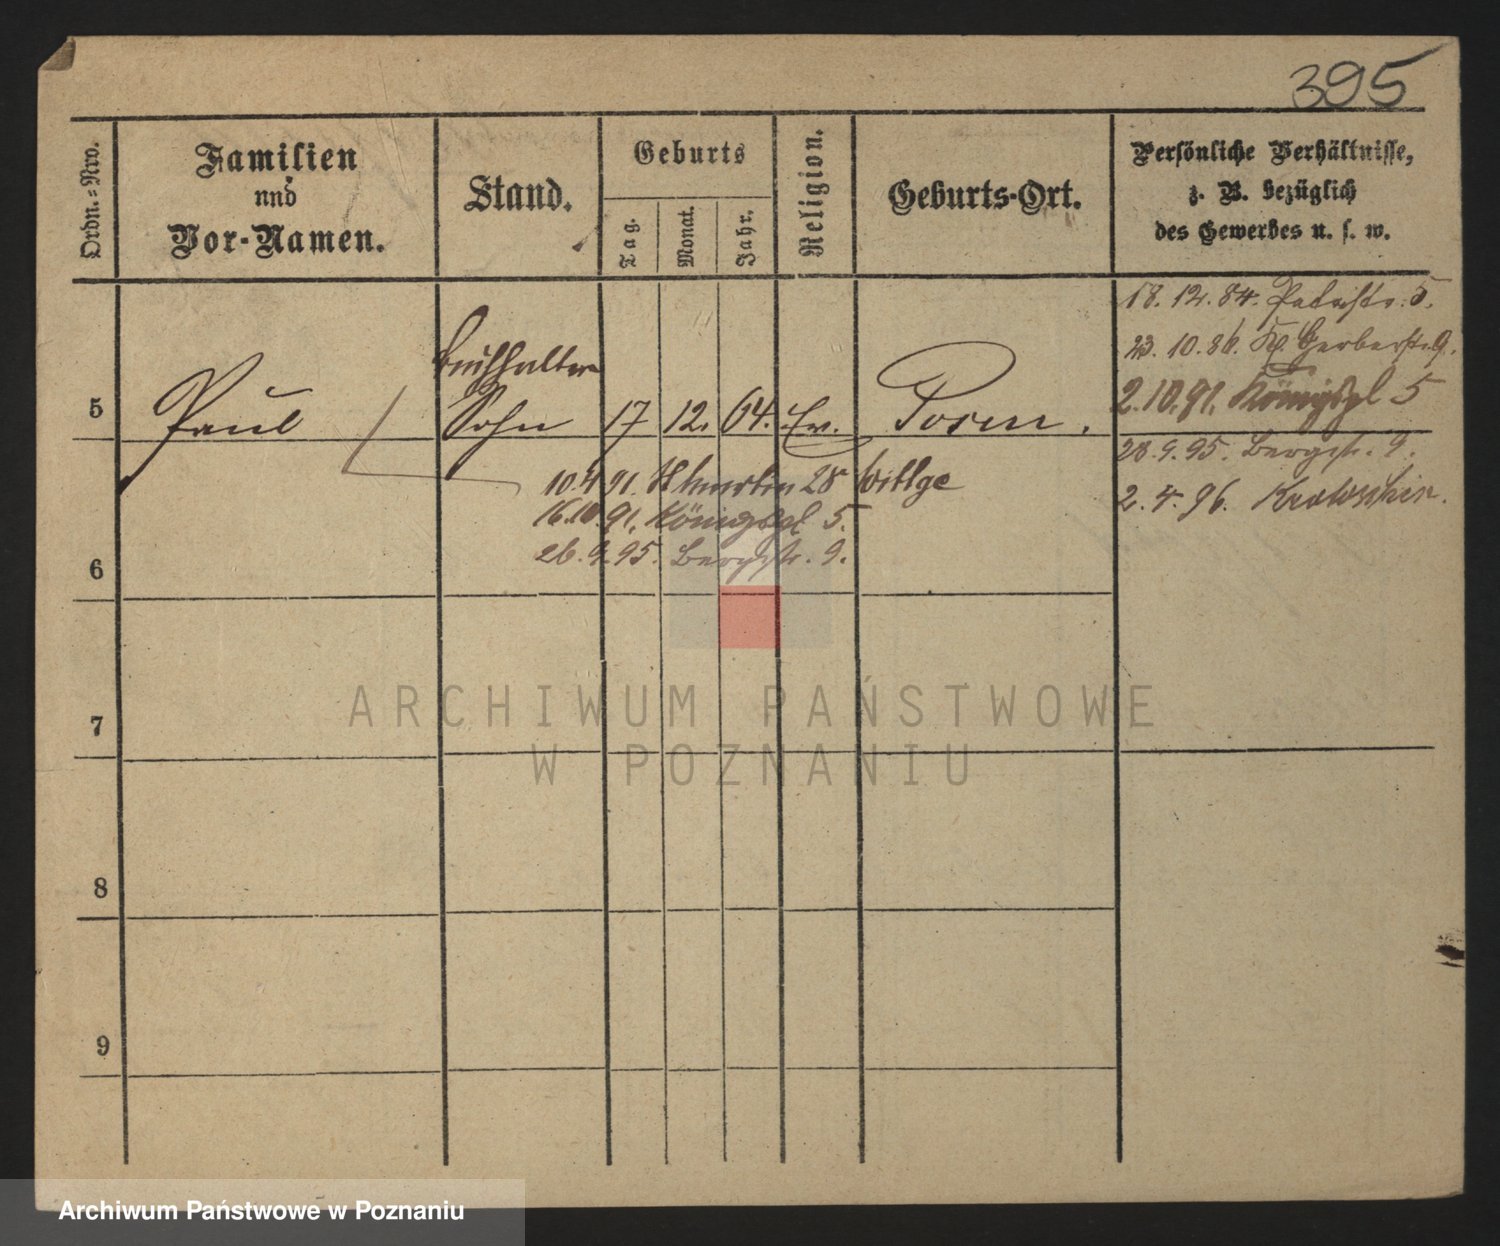 395
Ordn.=Nro.
Familien
nnd
Vor-Namen.
Stand.
Geburts
Tag.
Monat.
Jahr.
Religion.
Geburts-Ort.
Persönliche Verhältnisse,
z. B. bezüglich
des Gewerbes u. s. w.
18. 12. 84. 5.
23. 10. 86. Kl. Gerberstr. 9.
2. 10. 91. Königspl 5
Buchhalter
5 Paul Sohn 17 12. 64. Ev. Posen.
28. 9. 95. Bergstr. 9.
10.4 91. St Martin 28 Wittge
2. 4. 96. Krotoschin.
16.10.91. Königspl 5.
26. 9. 95. Bergstr. 9.
6
7
8
9
ARCHIWUM PAŃSTWOWE
W POZNANIU
Archiwum Państwowe w Poznaniu